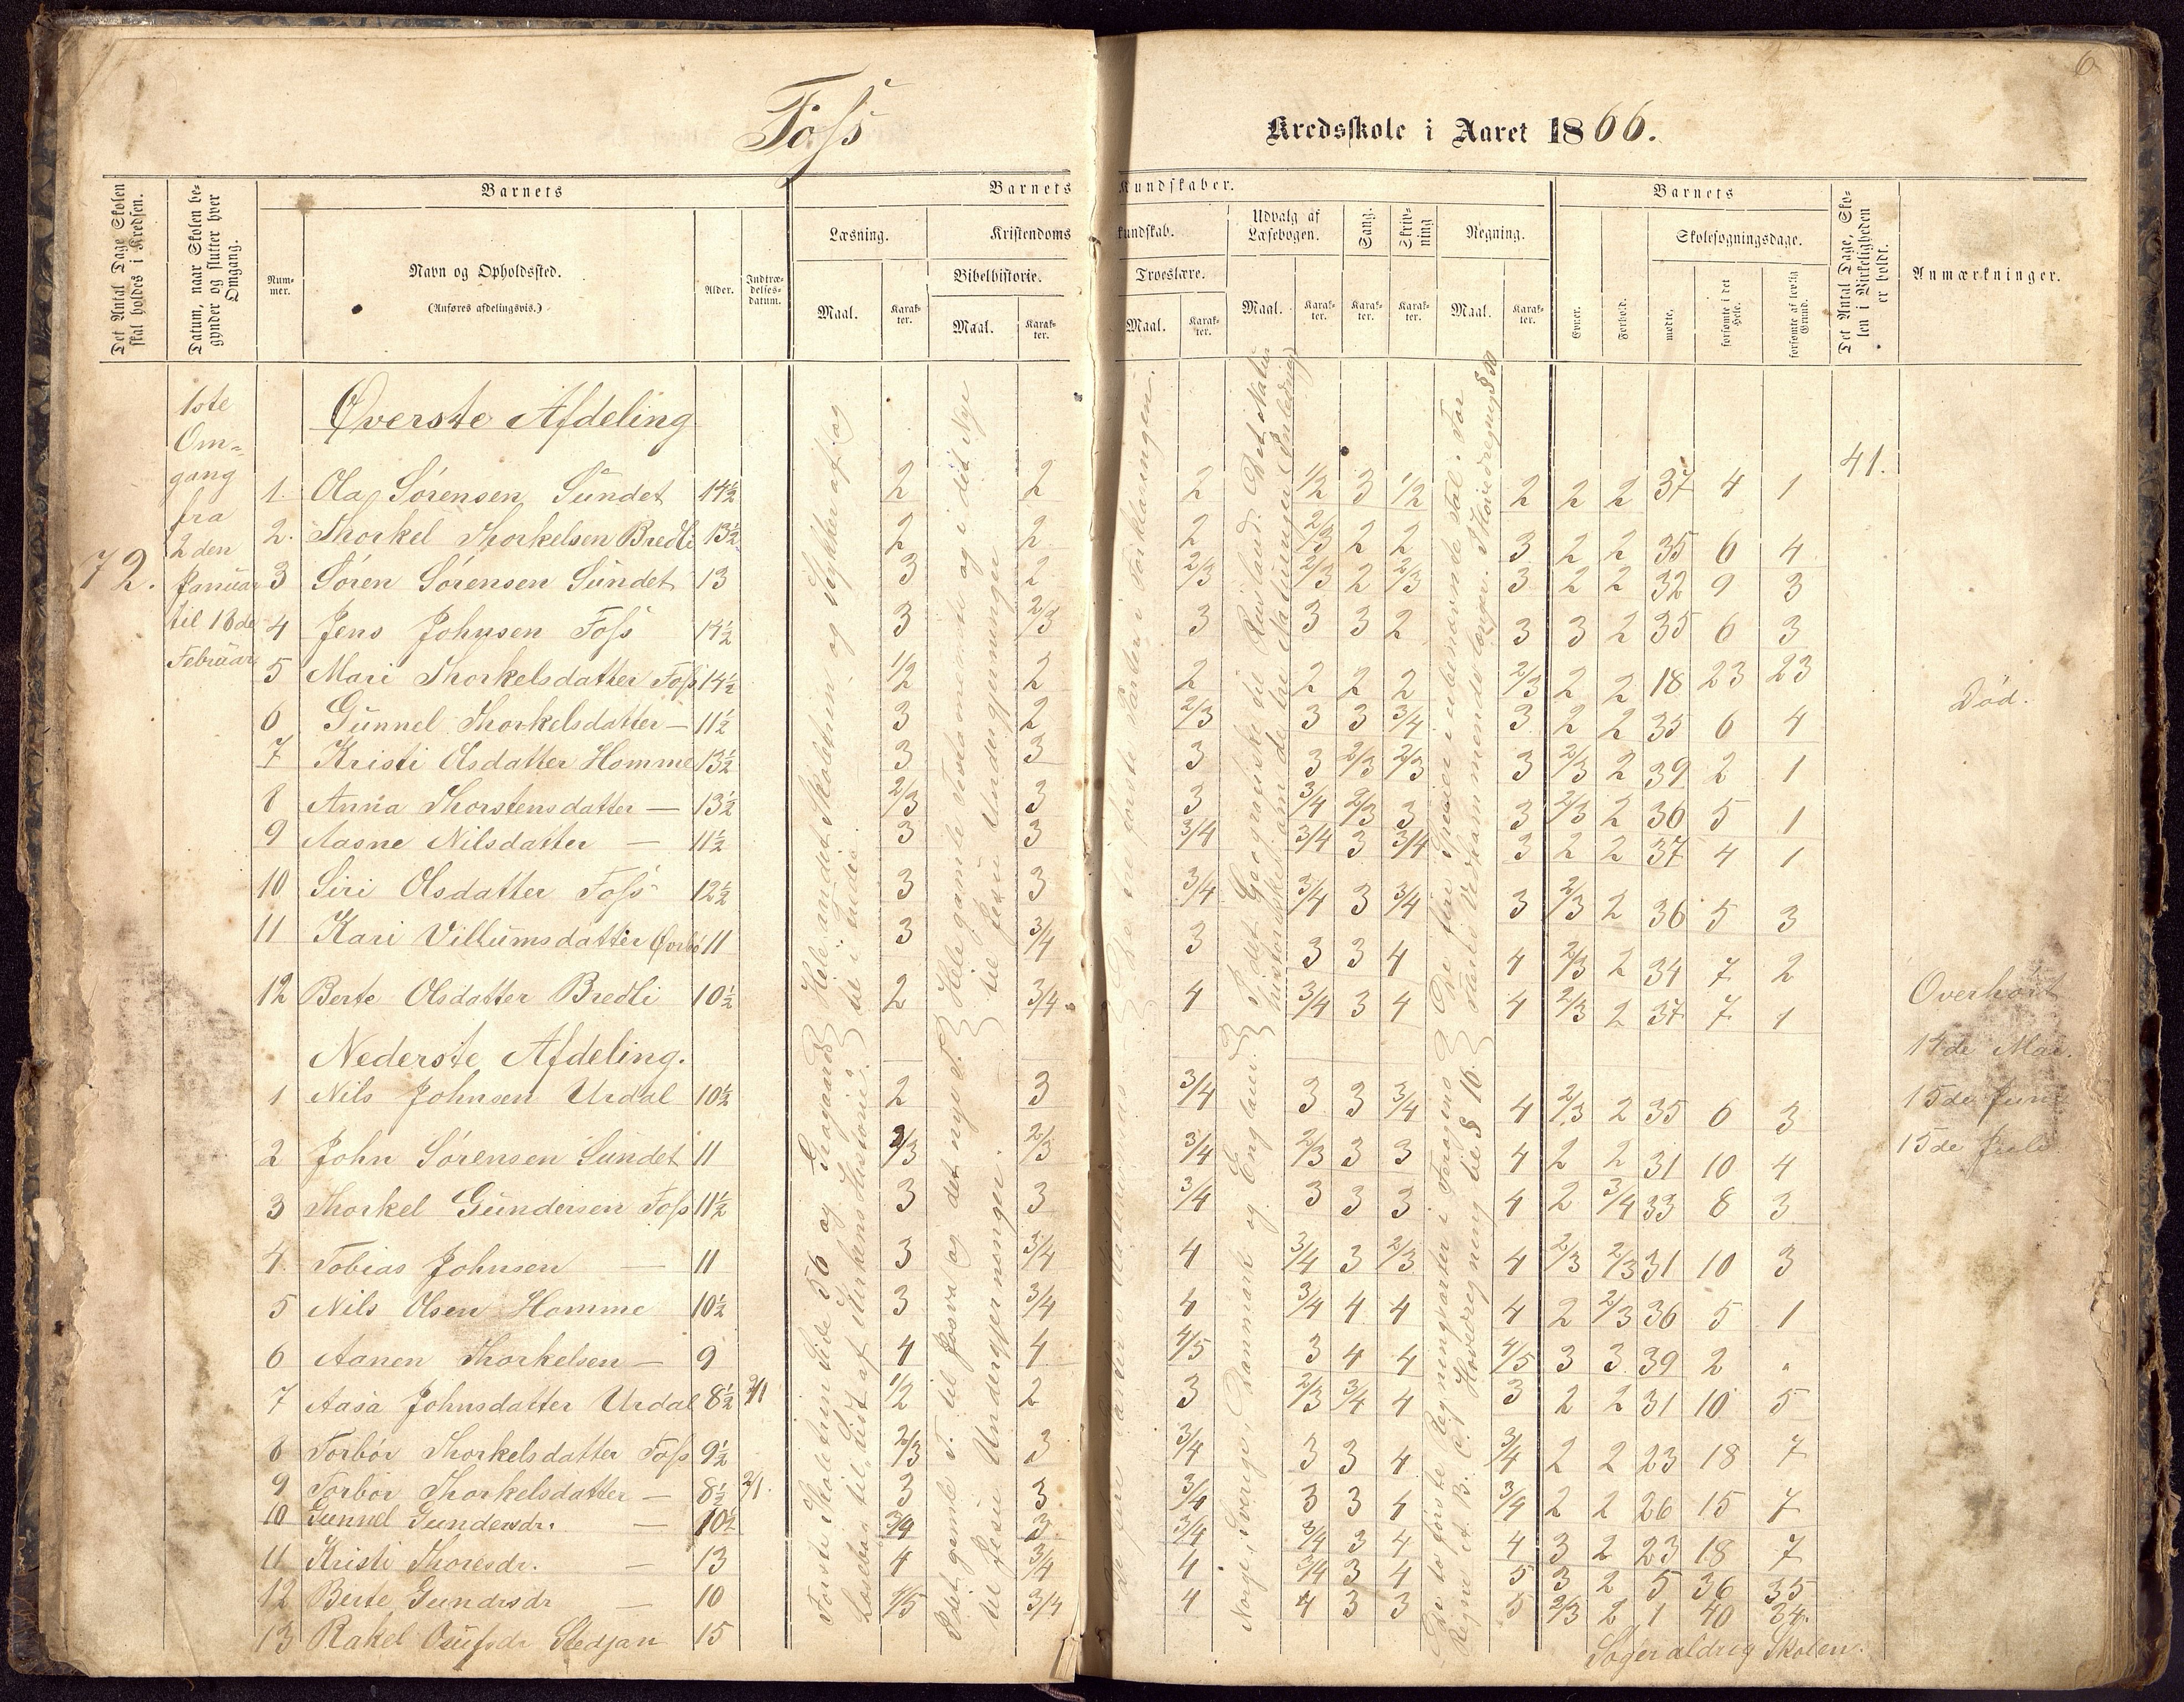 6
Foss
Kredsskole i Aaret 1866.
Det Antal Dage Skolen skal holdes i Kredsen.
Datum, naar Skolen begynder og slutter hver Omgang.
Barnets
Nummer.
Navn og Opholdssted.
(Anføres afdelingsvis.)
Alder.
Indtrædelsesdatum.
Barnets Kundskaber.
Læsning.
Maal.
Karakter.
Kristendomskundskab.
Bibelhistorie.
Maal.
Karakter.
Troeslære.
Maal.
Karakter.
Udvalg af Læsebogen.
Maal.
Karakter.
Sang.
Karakter.
Skrivning
Karakter.
Regning.
Maal.
Karakter.
Barnets
Evner.
Forhold.
Skolesøgningsdage.
mødte.
forsømte i det Hele.
forsømte af lovlig Grund.
Det Antal Dage, Skolen i Virkeligheden er holdt.
Anmærkninger.
72.
1ste
Om-
gang
fra
2den
Januar
til 18de
Februar
41.
Øverste Afdeling
1. Ola Sørensen Sundet 14½ 2 2 2 ½ 3 ½ 2 2 2 37 4 1
2. Thorkel Thorkelsen Bredli 13½ 2 2 2 2/3 2 2 3 2 2 35 6 4
3 Søren Sørensen Sundet 13 3 2 2/3 2/3 2 2/3 3 2 2 32 9 3
4 Jens Johnsen Foss 14½ 3 2/3 3 3 3 2 3 3 2 35 6 3
5 Mari Thorkelsdatter Foss 14½ ½ 2 2 2 2 2 2/3 2 2 18 23 23 Død.
6 Gunnel Thorkelsdatter — 11½ 3 2 2/3 3 3 3/4 3 2 2 35 6 4
7 Kristi Olsdatter Homme 13½ 3 3 3 3 2/3 2/3 3 2/3 2 39 2 1
8 Anna Thorstensdatter — 13½ 2/3 3 3 3/4 2/3 3 3 2/3 2 36 5 1
9 Aasne Nilsdatter — 11½ 3 3 3/4 3/4 3 3/4 3 2 2 37 4 1
10 Siri Olsdatter Foss 12½ 3 3 3/4 3/4 3 3/4 3 2/3 2 36 5 3
11 Kari Villumsdatter 11 3 3/4 3 3 3 4 4 2/3 2 34 7 2
12 Berte Olsdatter Bredli 10½ 2 3/4 4 3/4 3 4 4 2/3 2 37 7 1
Overhørt
14de Mai.
15de Juni
15de Juli
Nederste Afdeling.
1 Nils Johnsen Urdal 10½ 2 3 3/4 3 3 3/4 4 2/3 2 35 6 3
2 John Sørensen Sundet 11 2/3 2/3 3/4 2/3 3 3 4 2 2 31 10 4
3 Thorkel Gundersen Foss 11½ 3 3 3/4 3 3 3 4 2 3/4 33 8 3
4. Tobias Johnsen — 11 3 3/4 4 3/4 3 2/3 4 2/3 2/3 31 10 3
5 Nils Olsen Homme 10½ 3 3/4 4 3/4 4 4 4 2 2/3 36 5 1
6 Aanen Thorkelsen — 9 4 4 4/5 3 4 4 4/5 3 3 39 2 "
7 Aasa Johnsdatter Urdal 8½ 2/1 ½ 2 3 2/3 3/4 4 3 2 2 31 10 5
8 Torbør Thorkelsdatter Foss 9½ 2/3 3 3/4 3 3 4 3/4 2 2 23 18 7
9 Torbør Thorkelsdatter — 8½ 2/1. 3 3 3/4 3 3 4 3/4 2 2 26 15 7
10 Gunnel Gundersdr. — 10½ 3/4 3 3/4 3/4 3 4 4 3 2 23 18 7
11 Kristi Thoresdr. — 13 4 3/4 4 3/4 3 4 5 3 2 5 36 35
12 Berte Gundrsdr — 10 4/5 3/4 4 4 3 3 5 2/3 2 1 40 34.
13 Rakel Osufsdr Stedjan 15 Søger aldrig Skolen.
Hele andet Skoletrin og Stykker af og til i tredie.
Hele gamle Testamente og i det Nye til Jesu Undergjerninger
De tre første Parter i Forklaringen.
I det Geografiske til Rusland. Det Natur historiske om de tre Naturriger (Indledning)
De fire Specier i ubenævnte Tal.
Første Skoletrin Side 56 og Læsebog til "Lidt af Kirkens Historie".
I det gamle T. til Josva og det nye T. til Jesu Undergjerninger.
Norge, Sverige, Danmark og England.
De to første Regningsarter i
Regne A. B. C. Hovedregning til § 16.